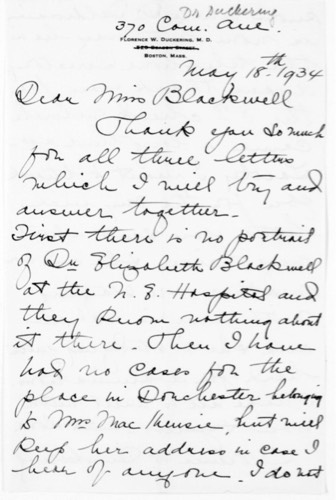 Dr Duckering
370 Com. Ave.
FLORENCE W. DUCKERING, M. D.
BOSTON, MASS.
May 18th, 1934
Dear Miss Blackwell
Thank you so much
for all three letters
which I will try and
answer together.
First there is no portrait
of Dr Elizabeth Blackwell
at the N. E. Hospital and
they know nothing about
it there. Then I have
had no cases for the
place in Dorchester belonging
to Mrs MacKensie, but will
keep her address in case I
hear of anyone. I do not